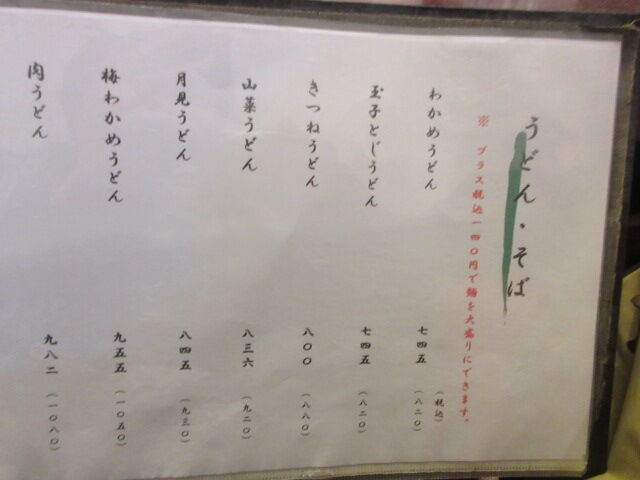 うどん・そば
※ プラス税込一四〇円で麺を大盛りにできます。
わかめうどん 七四五 (税込) (八二〇)
玉子とじうどん 七四五 (八二〇)
きつねうどん 八〇〇 (八八〇)
山菜うどん 八三六 (九二〇)
月見うどん 八四五 (九三〇)
梅わかめうどん 九五五 (一〇五〇)
肉うどん 九八二 (一〇八〇)